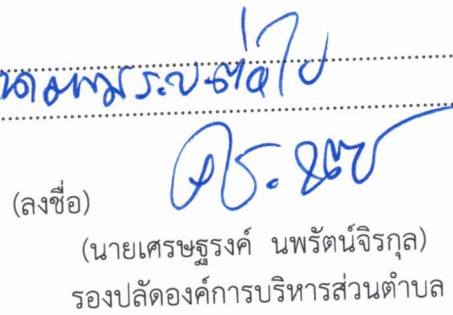 ต่อไป
(ลงชื่อ)
(นายเศรษฐรงค์ นพรัตน์จิรกุล)
รองปลัดองค์การบริหารส่วนตำบล